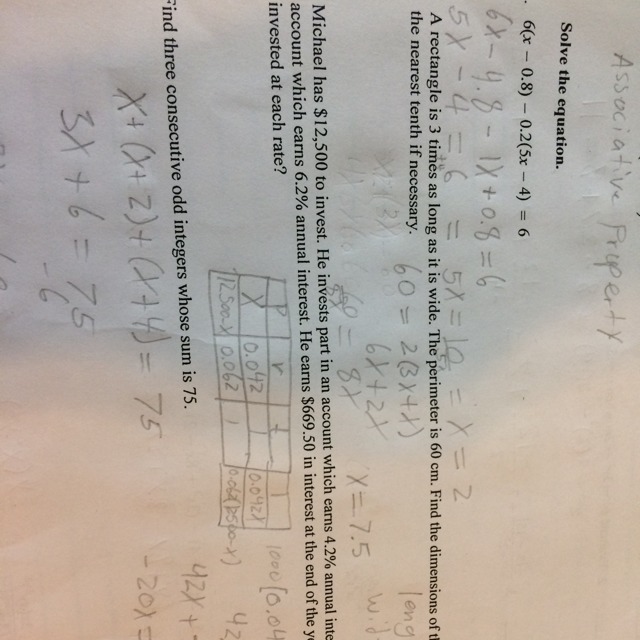 Associative Property
Solve the equation.
6(x – 0.8) – 0.2(5x – 4) = 6
6x - 4.8 - 1x + 0.8 = 6
5x - 4 = 6 = 5x = 10 = x = 2
A rectangle is 3 times as long as it is wide. The perimeter is 60 cm. Find the dimensions of t
the nearest tenth if necessary.
60 = 2(3x+x)
6x+2x
60 = 8x
x = 7.5
leng
Wid
Michael has $12,500 to invest. He invests part in an account which earns 4.2% annual inte
account which earns 6.2% annual interest. He earns $669.50 in interest at the end of the ye
invested at each rate?
P r t I
X 0.042 1 0.042x
12,500-x 0.062 1 0.062(12500-x)
1000[0.04
42x +
-20x =
ind three consecutive odd integers whose sum is 75.
x + (x+2) + (x+4) = 75
3x + 6 = 75
-6